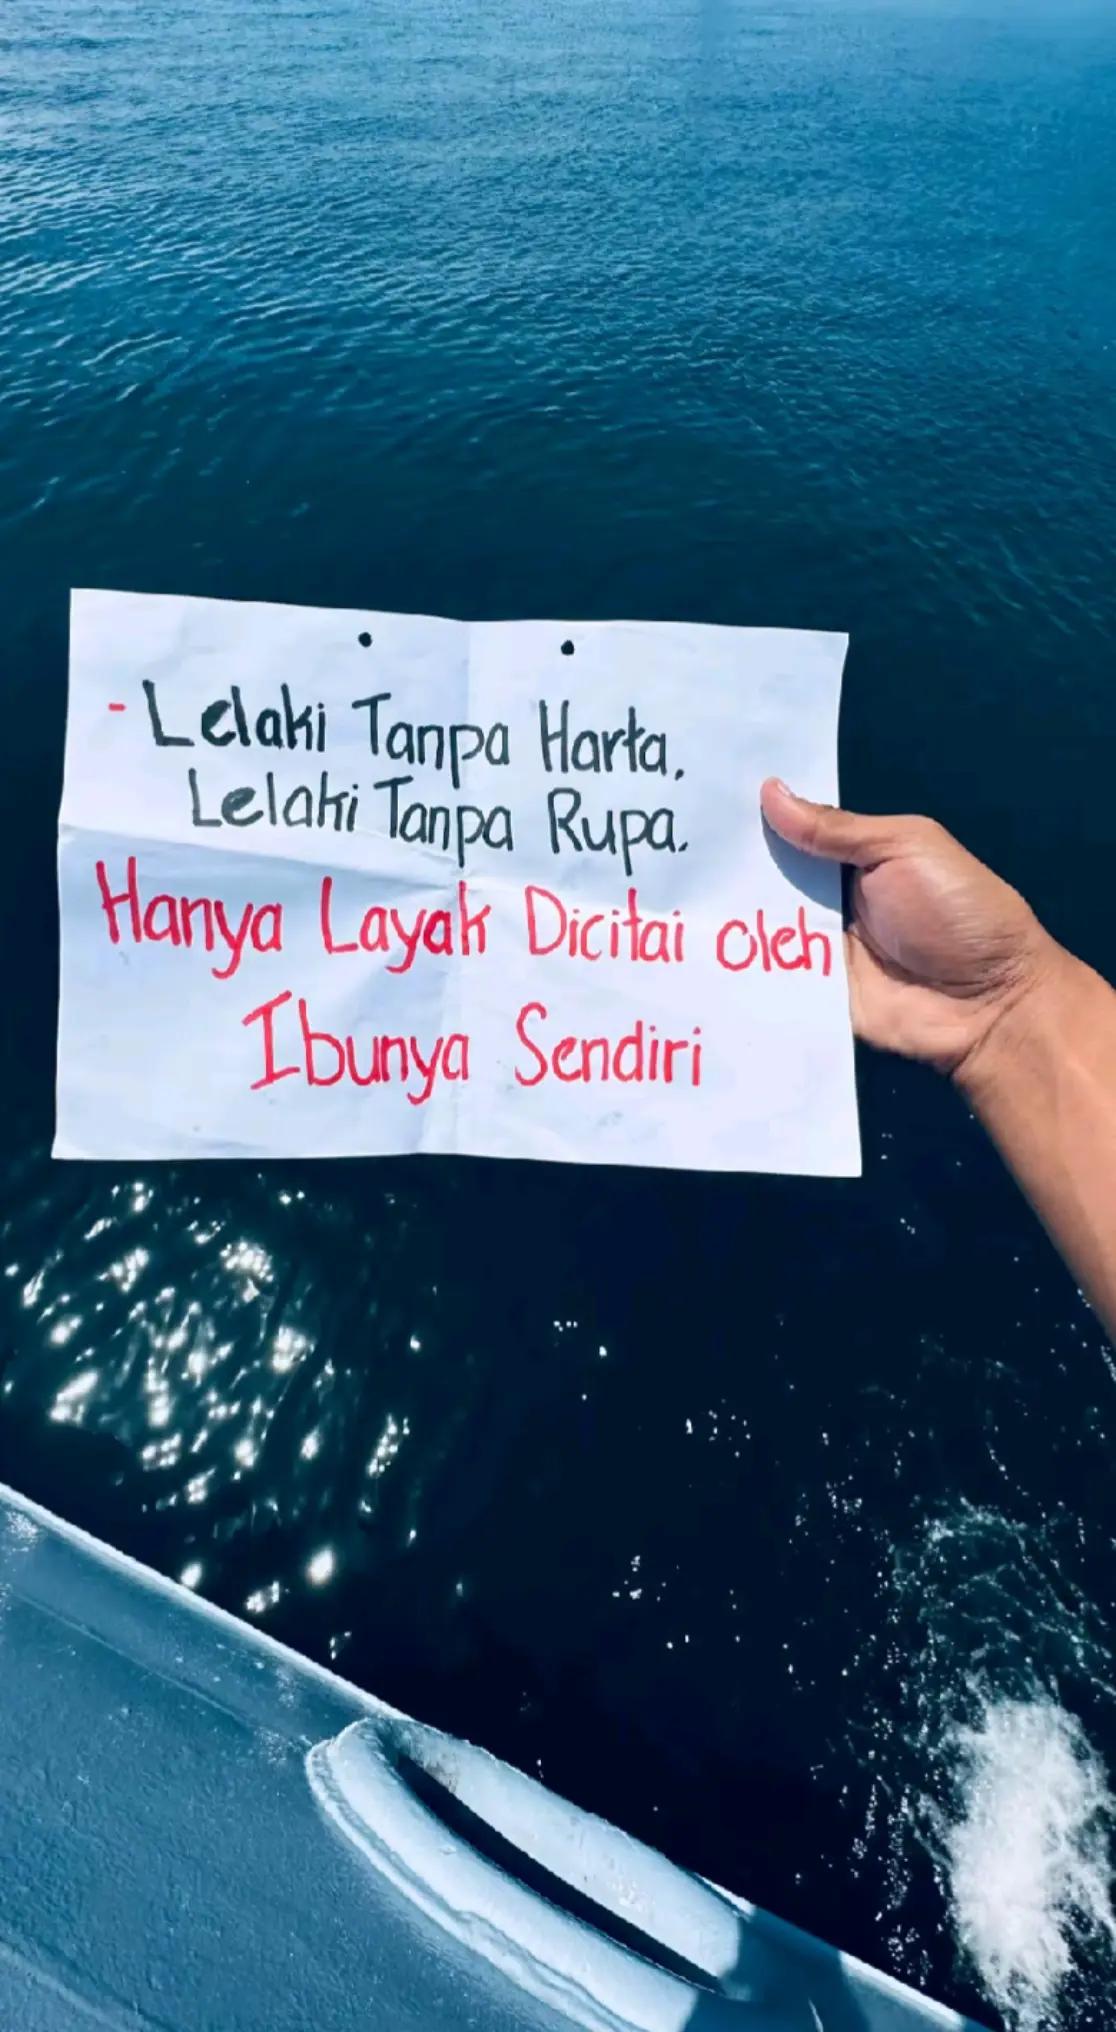 - Lelaki Tanpa Harta.
Lelaki Tanpa Rupa.
Hanya Layak Dicitai oleh
Ibunya Sendiri